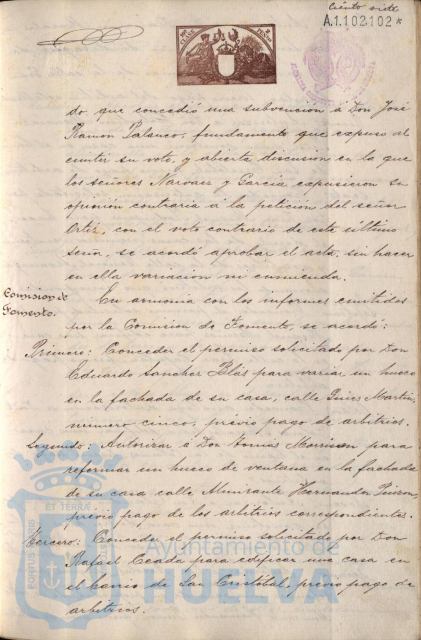 Ciento siete
A.1.102.102*
do que concedió una subvención á Don José
Ramon Palanco, fundamento que expuso al
emitir su voto, y abierta discusion en la que
los señores Narvaez y García expusieron su
opinión contraria á la petición del señor
Ortiz, con el voto contrario de este último
señor, se acordó aprobar el acta, sin hacer
en ella variacion ni enmienda.
Comision de
Fomento.
En armonia con los informes emitidos
por la Comision de Fomento, se acordó:
Primero: Conceder el permiso solicitado por Don
Eduardo Sanchez Blás para variar un hueco
en la fachada de su casa, calle Gines Martin,
número cinco, previo pago de arbitrios.
Segundo: Autorizar á Don Tomás Morrison para
reformar un hueco de ventana en la fachada
de su casa calle Almirante Hernandez Pinzon,
previo pago de los arbitrios correspondientes.
Tercero: Conceder el permiso solicitado por Don
Rafael Ceada para edificar una casa en
el barrio de San Cristóbal, previo pago de
arbitrios.
ET TERRÆ
Ayuntamiento de
HUELVA